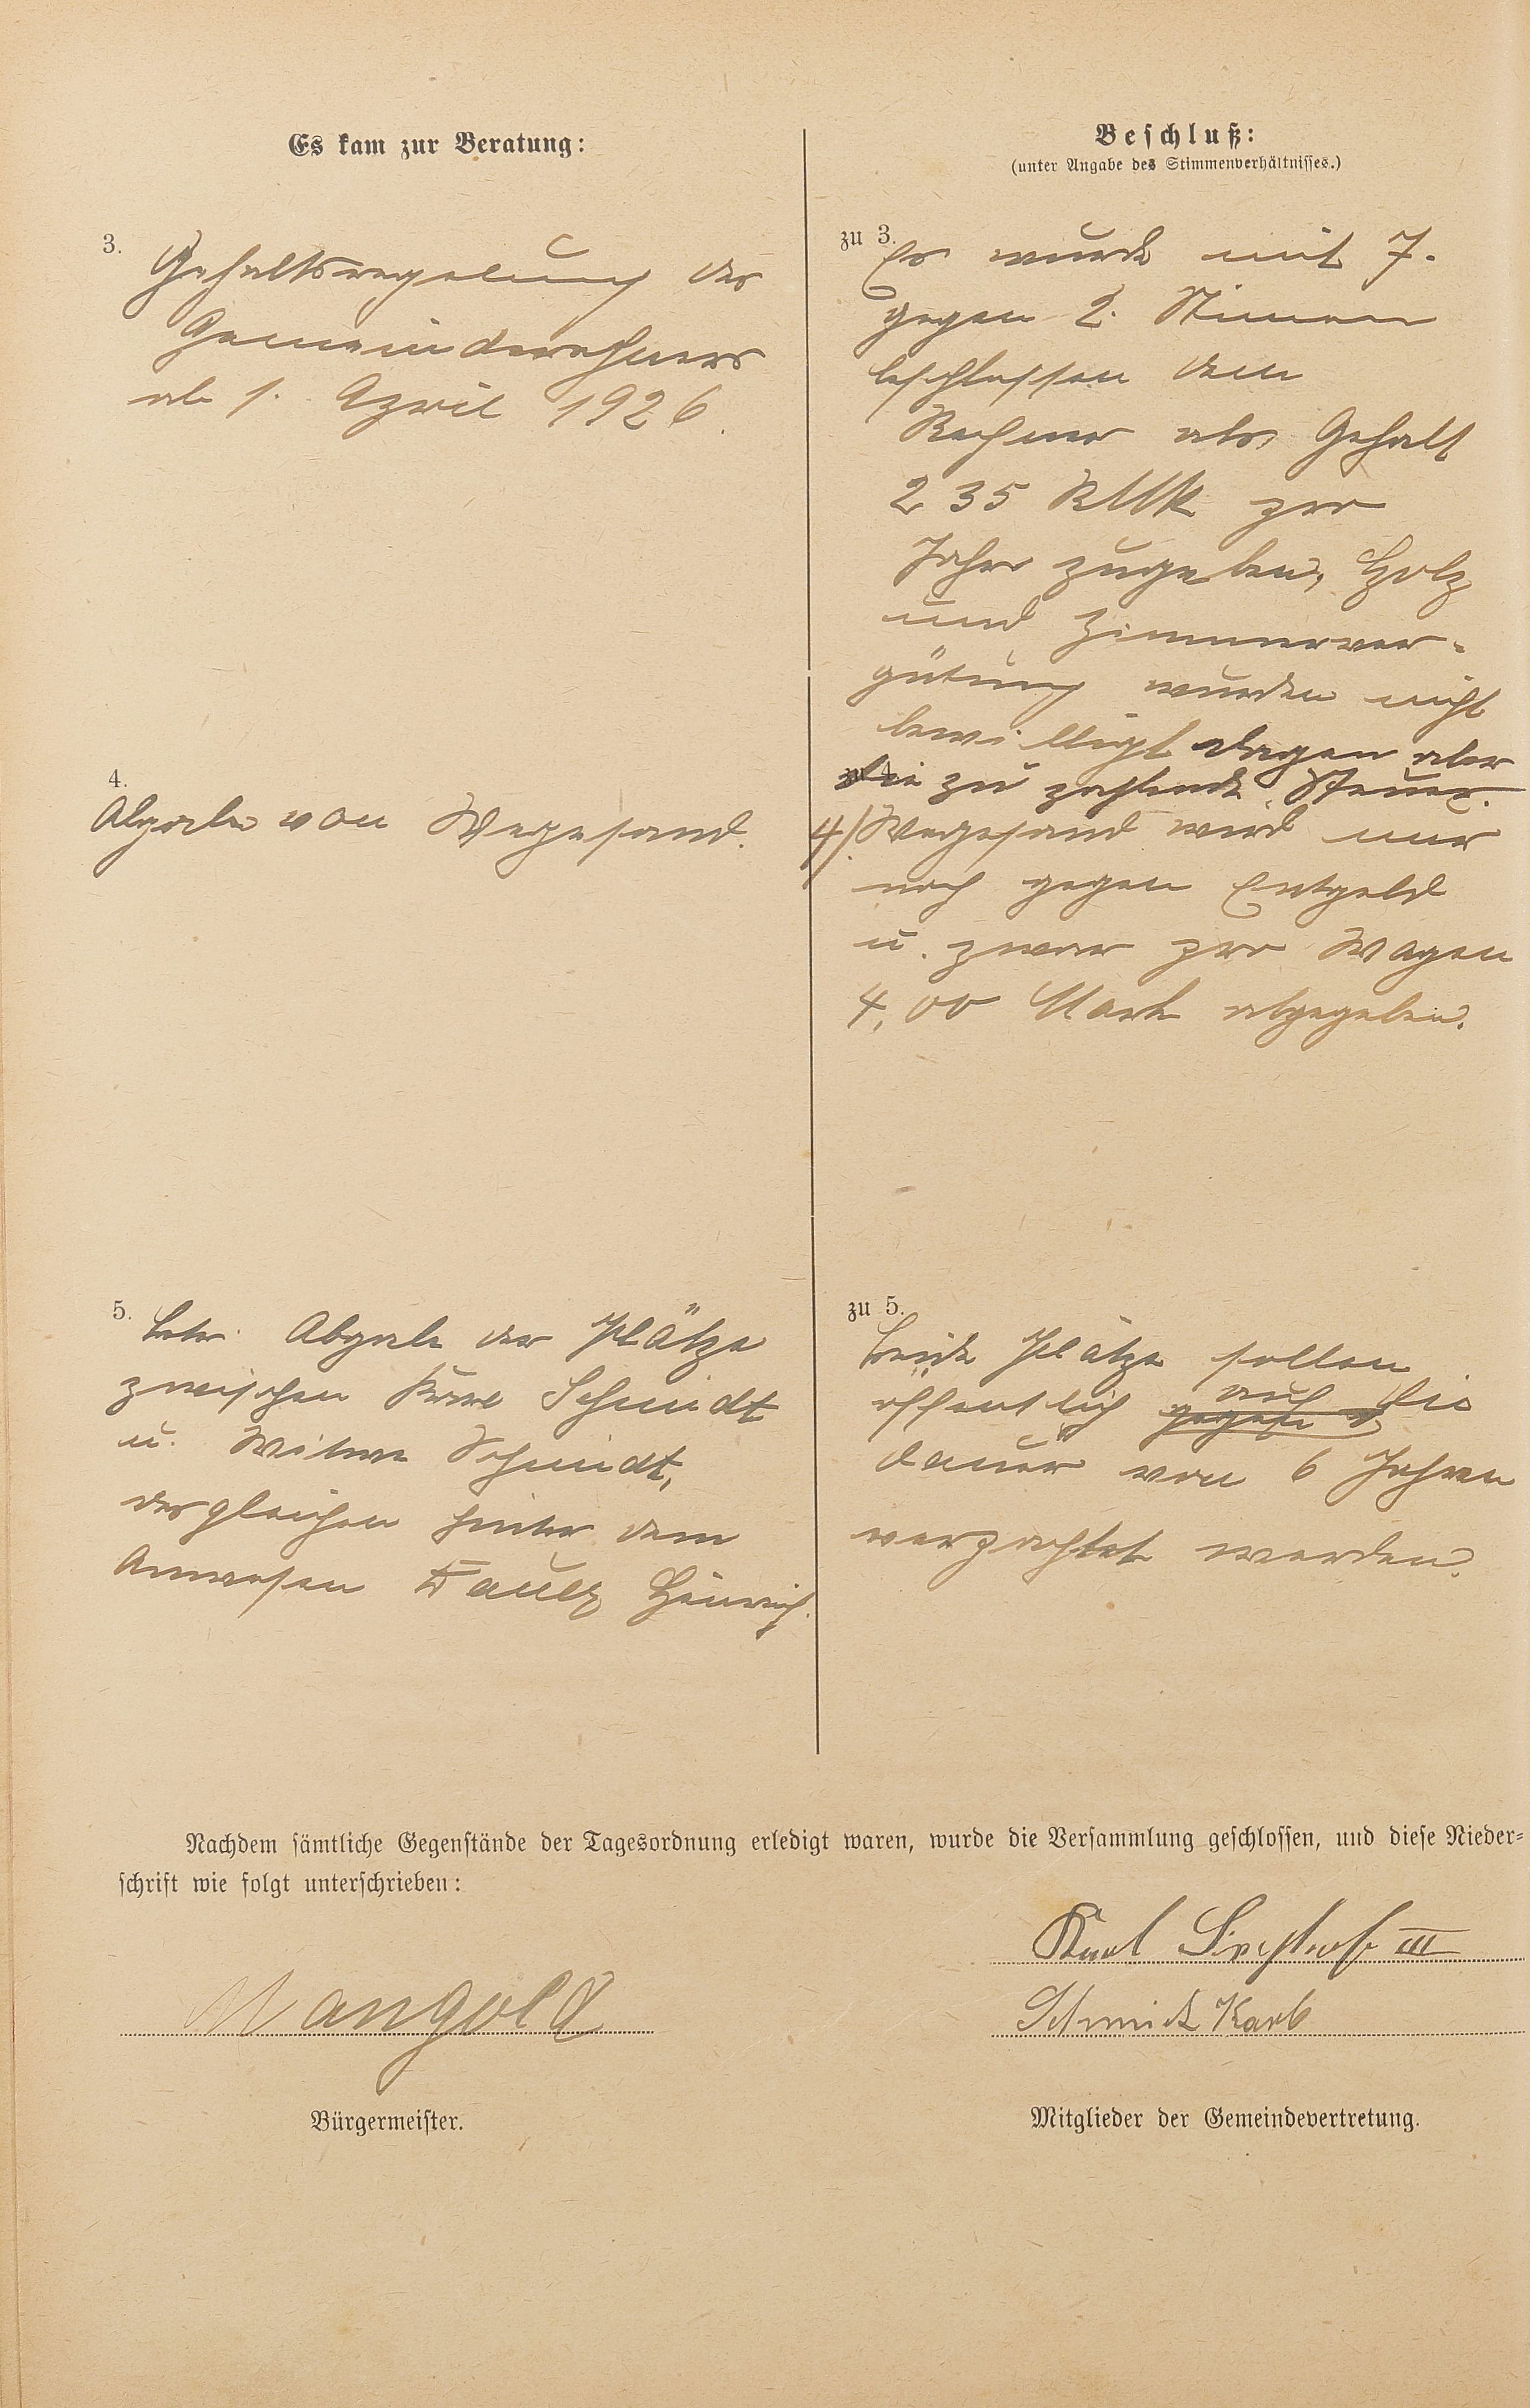 Es kam zur Beratung:
3.
Gehaltsregelung des
Gemeinderechners
ab 1. April 1926.
4.
Abgabe von Wegesand.
5.
betr. Abgabe der Plätze
zwischen Karl Schmidt
u. Witwe Schmidt,
desgleichen hinter dem
Anwesen Heinrich.
Beschluß:
(unter Angabe des Stimmenverhältnisses.)
zu 3.
Es wurde mit 7.
gegen 2. Stimmen
beschlossen dem
Rechner als Gehalt
235 RMk pro
Jahr zugeben, Holz
und Zimmerver-
gütung wurden nicht
bewilligt dagegen aber
die zu zahlende Steuer.
4/ Wegesand wird nur
noch gegen Entgeld
u. zwar pro Wagen
4,00 Mark abgegeben.
zu 5.
beide Plätze sollen
öffentlich auf die
dauer von 6 Jahren
verpachtet werden.
Nachdem sämtliche Gegenstände der Tagesordnung erledigt waren, wurde die Versammlung geschlossen, und diese Nieder-
schrift wie folgt unterschrieben:
Mangold
Bürgermeister.
Karl III
Schmidt Karl
Mitglieder der Gemeindevertretung.